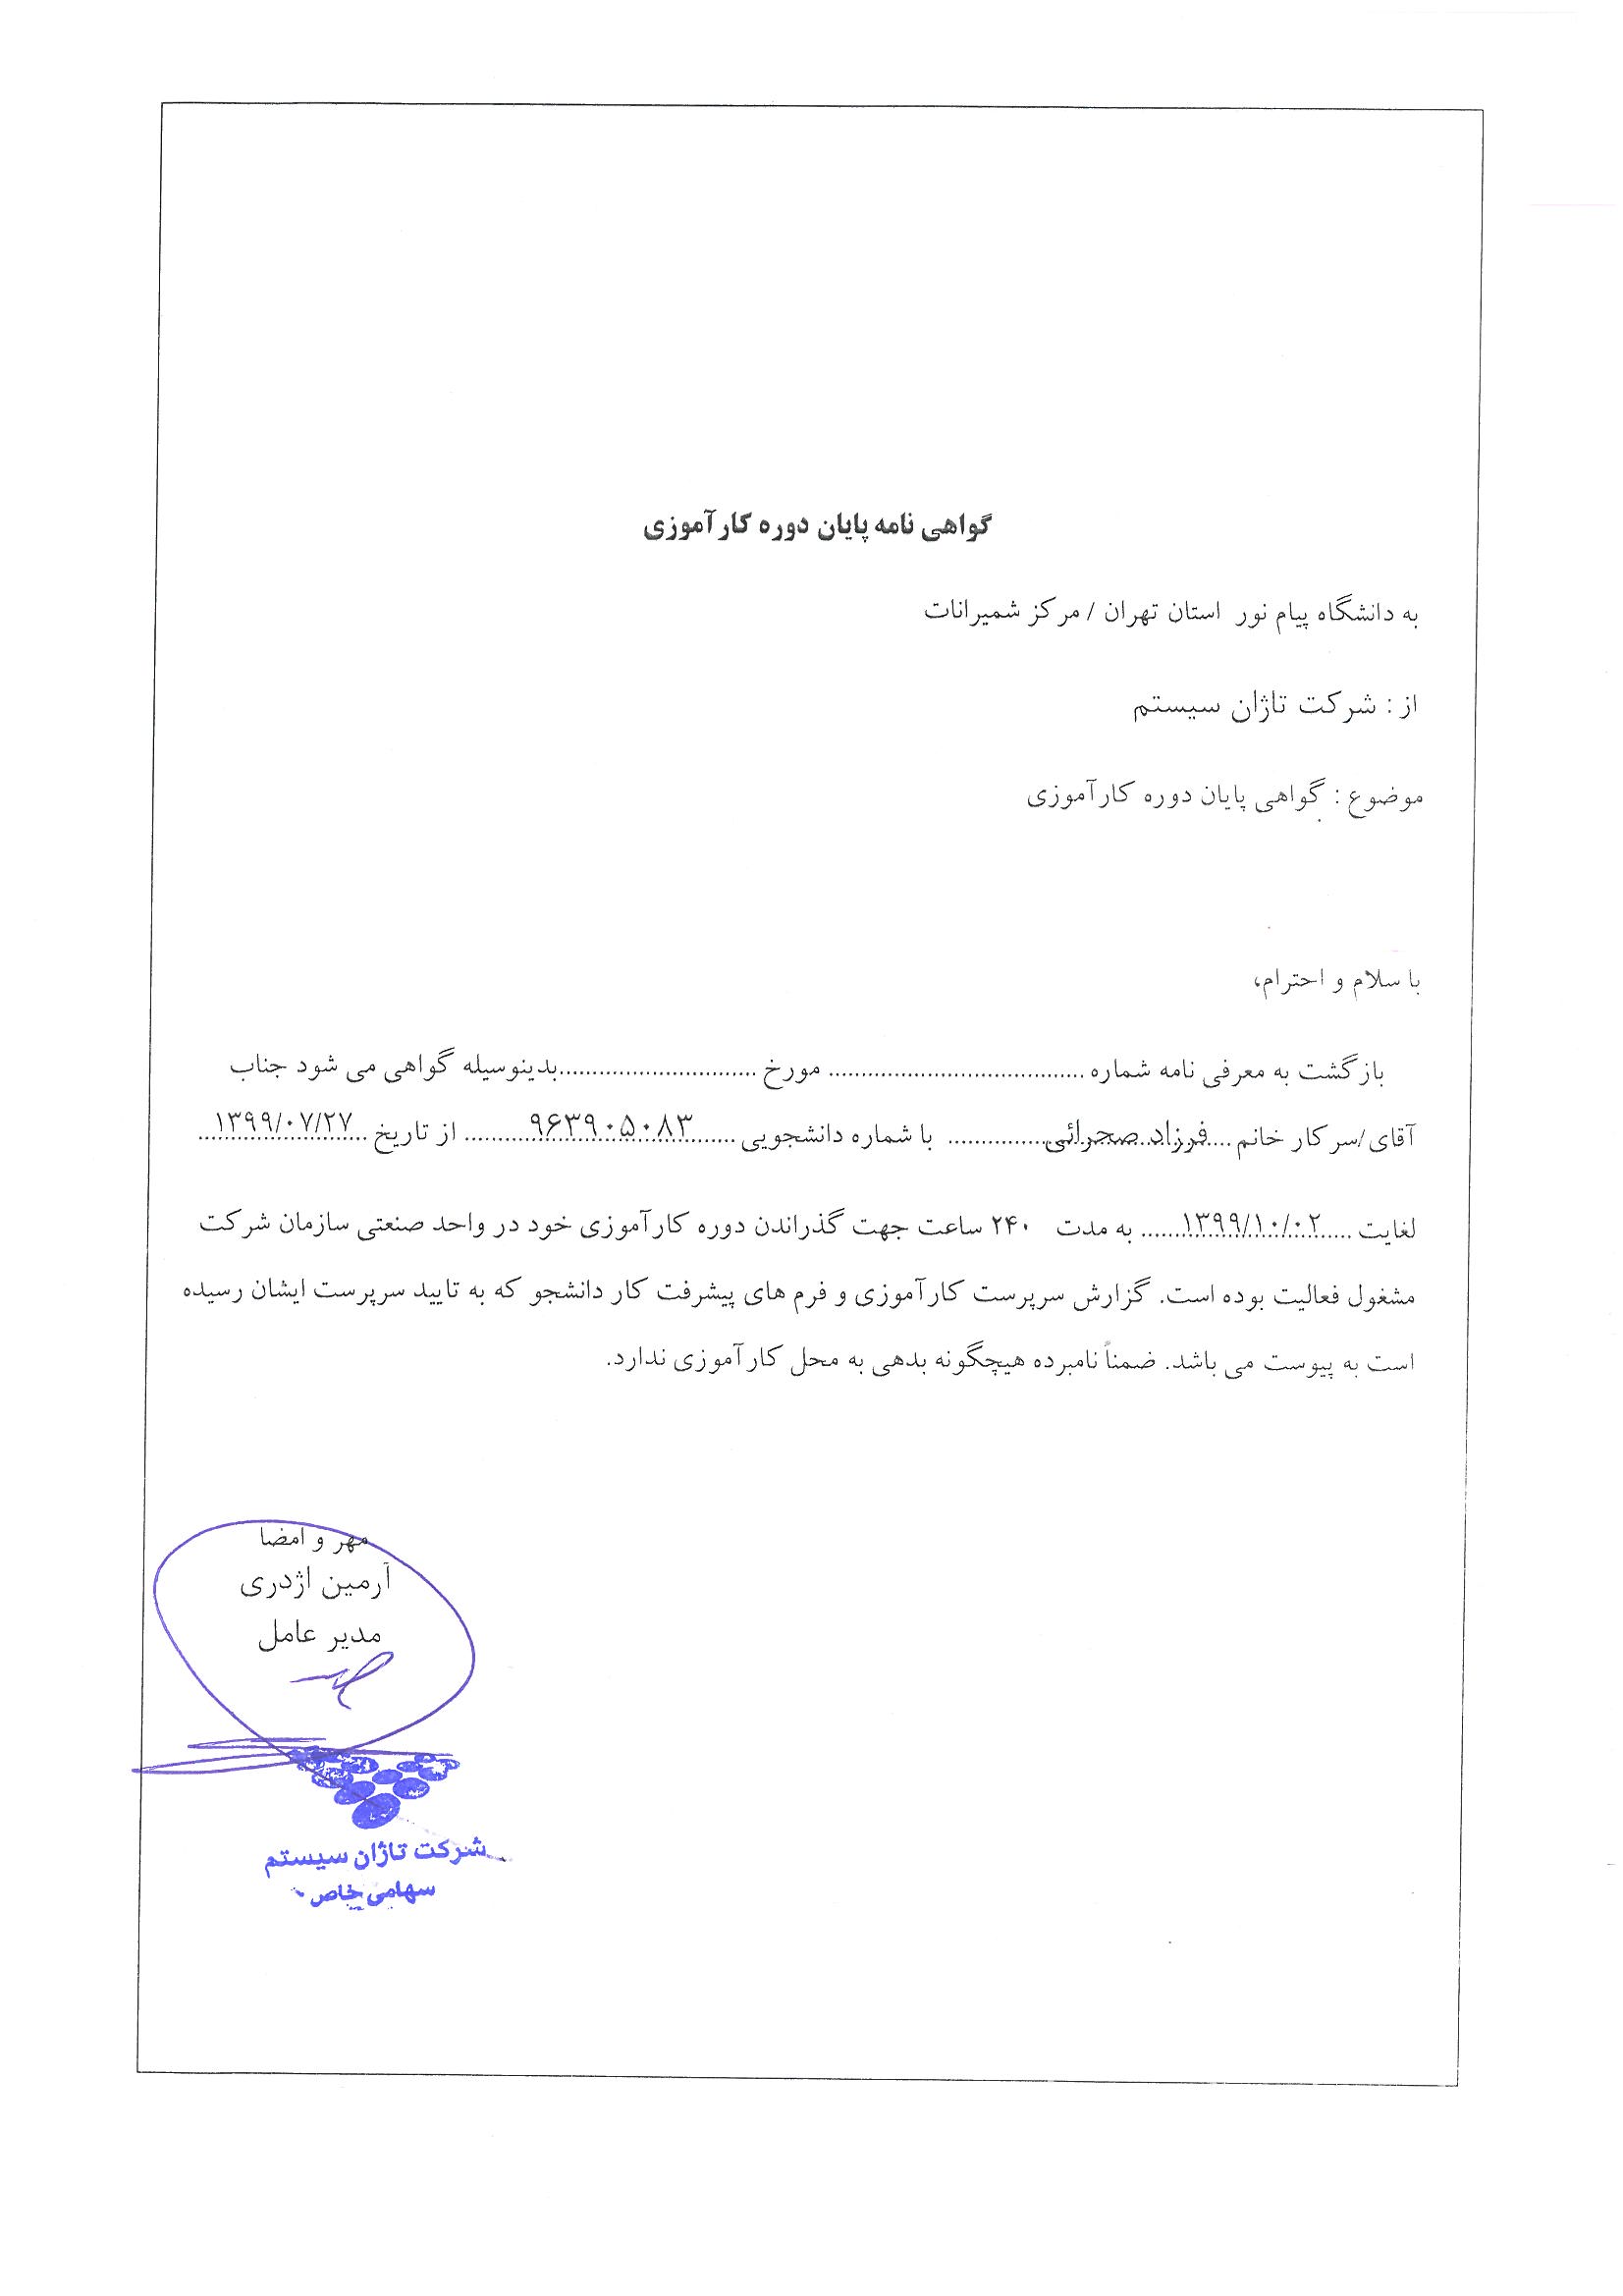 گواهی نامه پایان دوره کارآموزی
به دانشگاه پیام نور استان تهران / مرکز شمیرانات
از : شرکت تاژان سیستم
موضوع : گواهی پایان دوره کارآموزی
با سلام و احترام،
بازگشت به معرفی نامه شماره ....................................... مورخ ..............................بدینوسیله گواهی می شود جناب
آقای/سرکار خانم ....فرزاد صحرائی............... با شماره دانشجویی ......۹۶۳۹۰۵۰۸۳.......... از تاریخ ۱۳۹۹/۰۷/۲۷
لغایت ....۱۳۹۹/۱۰/۰۲...... به مدت ۲۴۰ ساعت جهت گذراندن دوره کارآموزی خود در واحد صنعتی سازمان شرکت
مشغول فعالیت بوده است. گزارش سرپرست کارآموزی و فرم های پیشرفت کار دانشجو که به تایید سرپرست ایشان رسیده
است به پیوست می باشد. ضمناً نامبرده هیچگونه بدهی به محل کارآموزی ندارد.
مهر و امضا
آرمین اژدری
مدیر عامل
شرکت تاژان سیستم
سهامی خاص